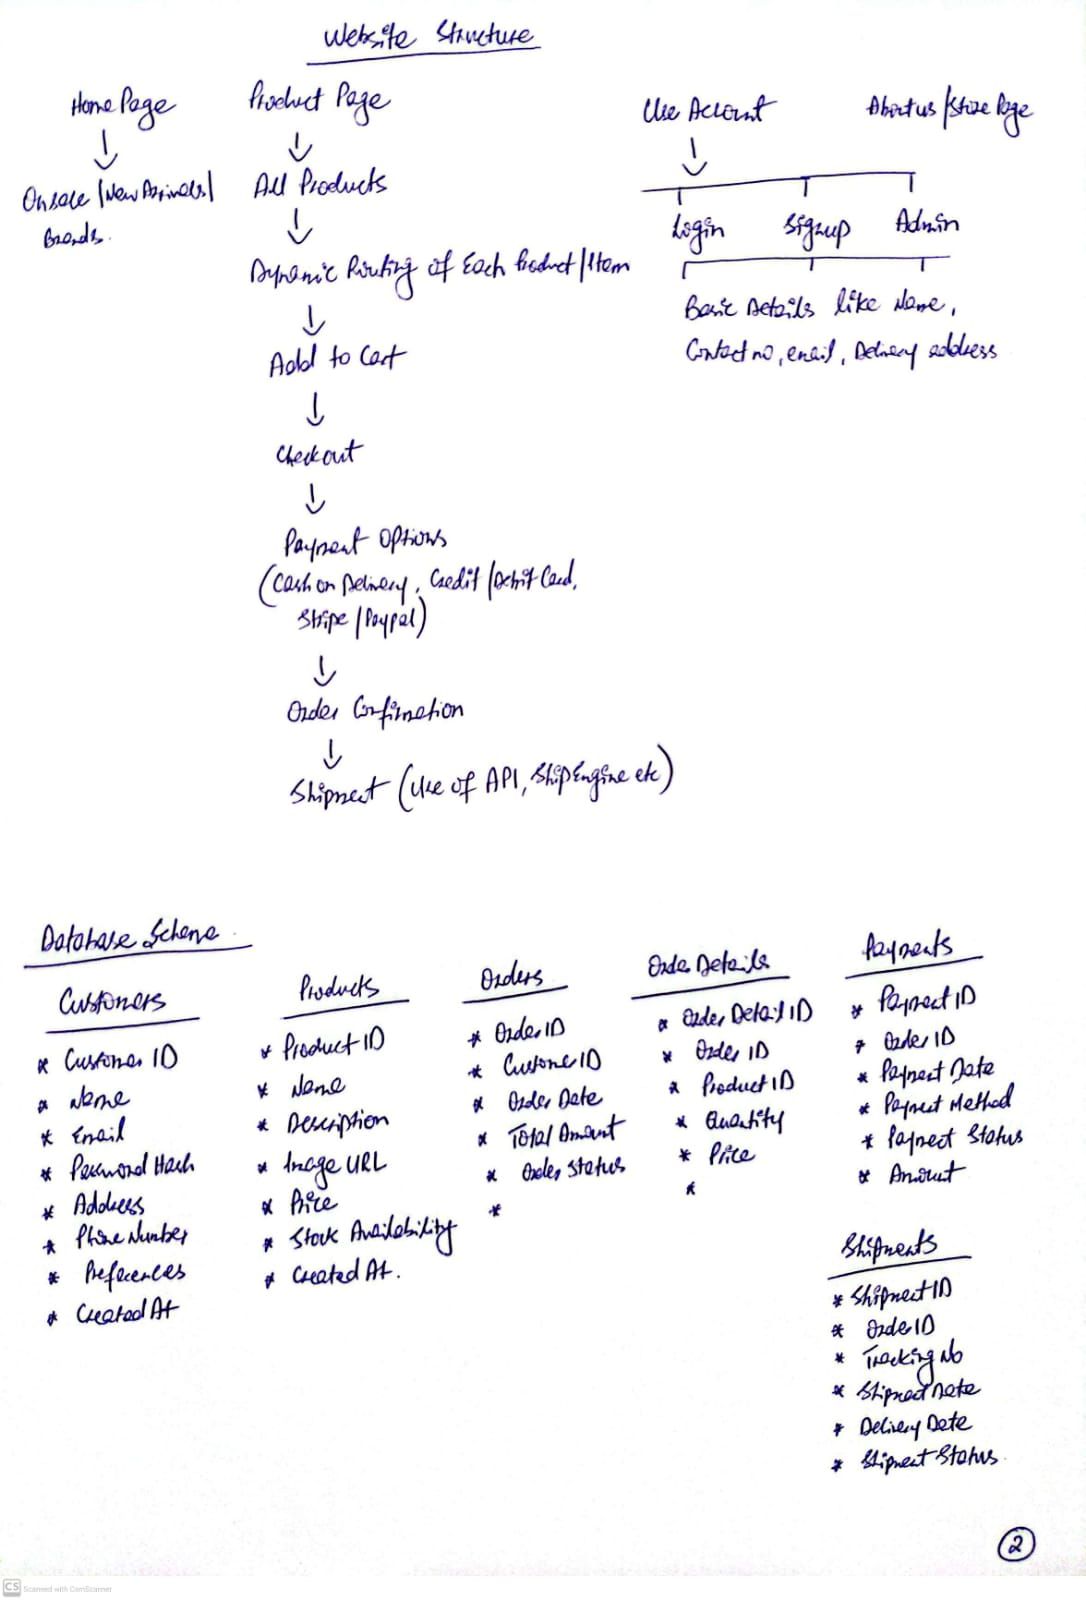 Website Structure
Home Page
On sale / New Arrivals /
Brands.
Product Page
All Products
Dynamic Routing of Each Product / Item
Add to Cart
Checkout
Payment Options
(Cash on Delivery, Credit / Debit Card,
Stripe / Paypal)
Order Confirmation
Shipment (Use of API, ShipEngine etc)
Use Account
Login Signup Admin
Basic Details like Name,
Contact no, email, Delivery address
About us / Store Page
Database Schema
Customers
* Customer ID
* Name
* Email
* Password Hash
* Address
* Phone Number
* Preferences
* Created At
Products
* Product ID
* Name
* Description
* Image URL
* Price
* Stock Availability
* Created At.
Orders
* Order ID
* Customer ID
* Order Date
* Total Amount
* Order Status
*
Order Details
* Order Detail ID
* Order ID
* Product ID
* Quantity
* Price
*
Payments
* Payment ID
* Order ID
* Payment Date
* Payment Method
* Payment Status
* Amount
Shipments
* Shipment ID
* Order ID
* Tracking No
* Shipment Date
* Delivery Date
* Shipment Status.
2
CS Scanned with CamScanner